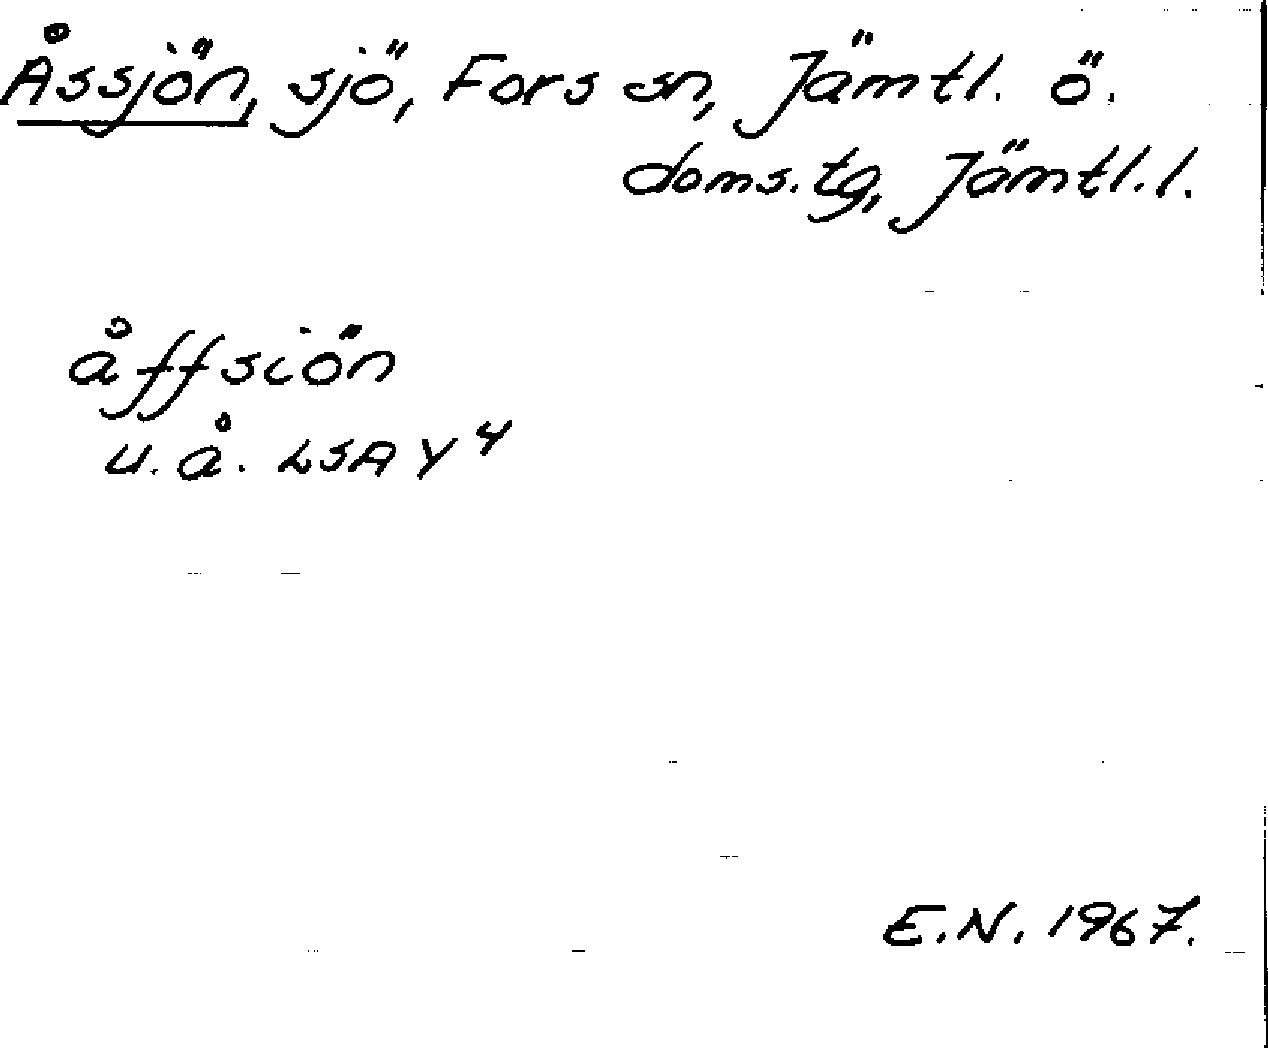 Åssjön, sjö, Fors sn, Jämtl. ö.
doms.tg, Jämtl.l.
åffsiön
u.å. LSA Y 4
E.N. 1967.